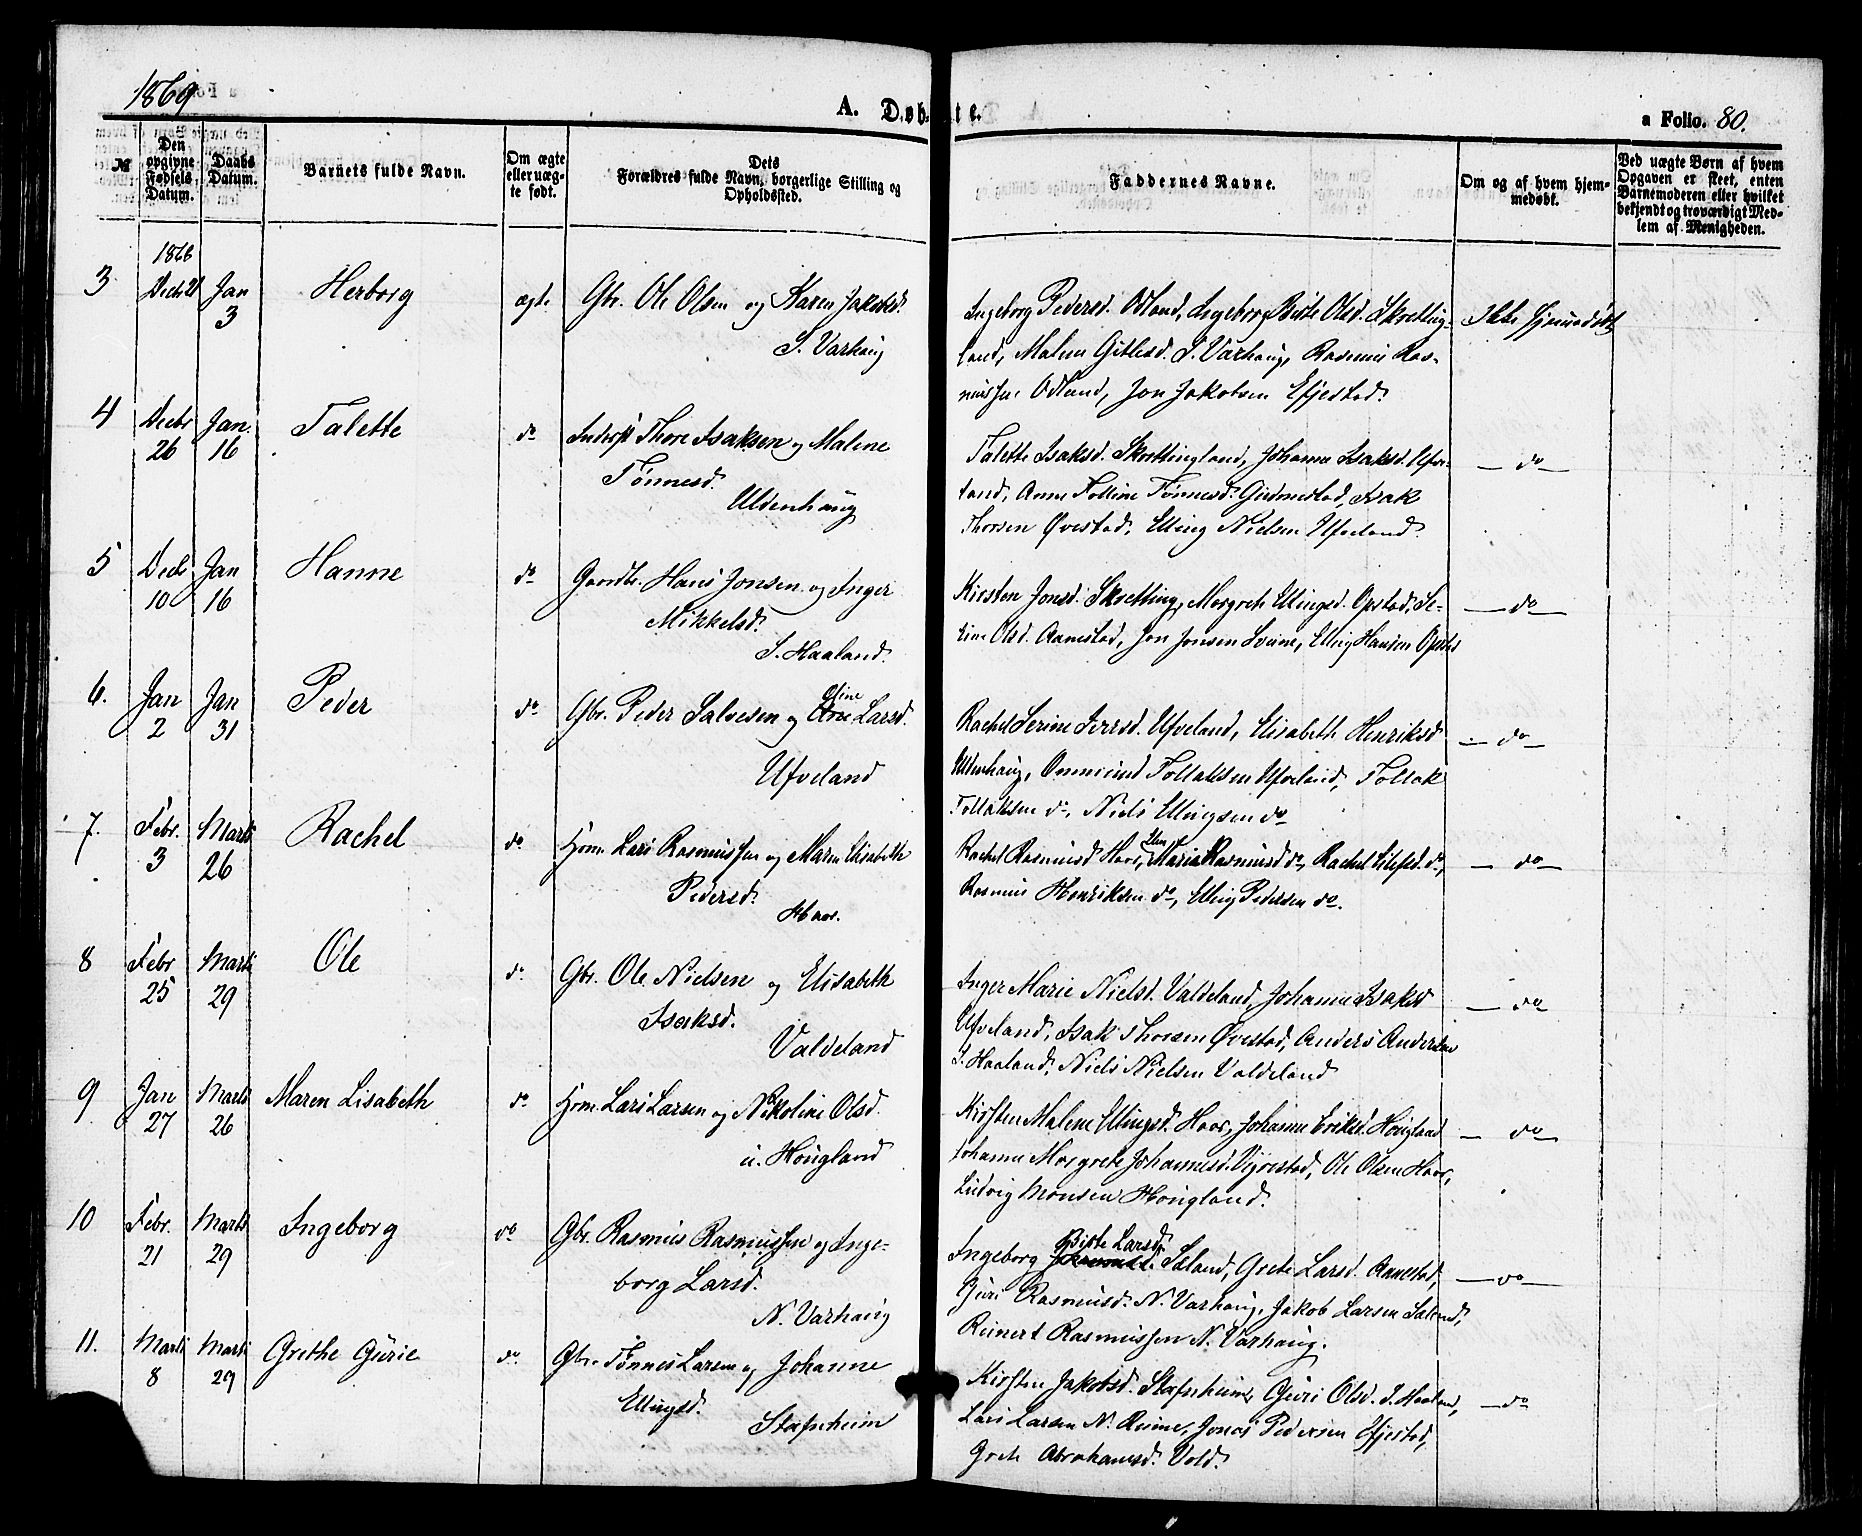 1869
A. Døbte.
a Folio. 80.
№
Den opgivne Fødsels Datum.
Daabs Datum.
Barnets fulde Navn.
Om ægte eller uægte født.
Dets Forældres fulde Navn, borgerlige Stilling og Opholdssted.
Faddernes Navne.
Om og af hvem hjemmedøbt.
Ved uægte Børn af hvem Opgaven er skeet, enten Barnemoderen eller hvilket bekjendt og troværdigt Medlem af Menigheden.
1868
3 Decbr 21 Jan 3 Herborg ægte Gbr. Ole Olsen og Karen Jakobsd.
S. Varhaug
Ingeborg Pedersd. Odland, Ingeborg Birte Olsd. Skretting-
land, Malene Gitlesd. S. Varhaug, Rasmus Ras-
mussen Odland, Jon Jakobsen Efjestad.
Ikke hjemmedøbt
4 Decbr 26 Jan. 16 Talette do Inderst Thore Isaksen og Malene
Tønnesd.
Uldenhaug
Talette Isaksd. Skrettingland, Johanne Isaksd. Ufve-
land, Anne Talline Tønnesd. Gudmestad, Isak
Thorsen Øvestad, Elling Nielsen Ufveland.
— do —
5 Decbr 10 Jan 16 Hanne do Gaardbr. Hans Jonsen og Inger
Mikkelsd.
S. Haaland.
Kirsten Jonsd. Skretting, Margrete Ellingsd. Opstad, Se-
rine Olsd. Aanestad, Jon Jonsen Svime, Elling Hansen Opstad
— do —
6. Jan 2 Jan 31 Peder do Gbr. Peder Salvesen og Oline Larsd.
Ufveland
Rachel Serine Iversd. Ufveland, Elisabeth Henriksd
Uldenhaug, Ommund Tollaksen Ufveland, Tollak
Tollaksen do, Niels Ellingsen do
— do —
7. Febr. 3 Marts 26 Rachel do Hsm. Lars Rasmussen og Maren Elisabeth
Pedersd.
Haar.
Rachel Rasmusd Haar, Maria Rasmusd do, Rachel do,
Rasmus Henriksen do, Elling Pedersen do.
— do —
8 Febr 25 Marts 29 Ole do Gbr. Ole Nielsen og Elisabeth
Isaksd.
Valdeland
Inger Marie Nielsd. Valdeland, Johanne Isaksd
Ufveland, Isak Thorsen Øvestad, Anders Andersen
S. Haaland, Niels Nielsen Valdeland
— do
9 Jan 27 Marts 26 Maren Lisabeth do Hsm. Lars Larsen og Nikoline Olsd.
u. Hougland
Kirsten Malene Ellingsd. Haar, Johanne Eriksd. Hougland
Johanne Margrete Johannesd. Vigrestad, Ole Olsen Haar,
Ludvig Monsen Hougland.
— do —
10 Febr. 21 Marts 29 Ingeborg do Gbr. Rasmus Rasmussen og Inge-
borg Larsd.
N. Varhaug
Ingeborg Birte Larsd. Søland, Grete Larsd. Aanestad,
Guri Rasmusd. N. Varhaug, Jakob Larsen Søland,
Reinert Rasmussen N. Varhaug.
— do —
11. Marts 8 Marts 29 Grethe Gurie do. Gbr. Tønnes Larsen og Johanne
Ellingsd.
Stafnheim
Kirsten Jakobsd. Stafnheim, Guri Olsd. S. Haaland,
Lars Larsen N. Reime, Jonas Pedersen Efjestad,
Grete Abrahamsd. Vold.
— do